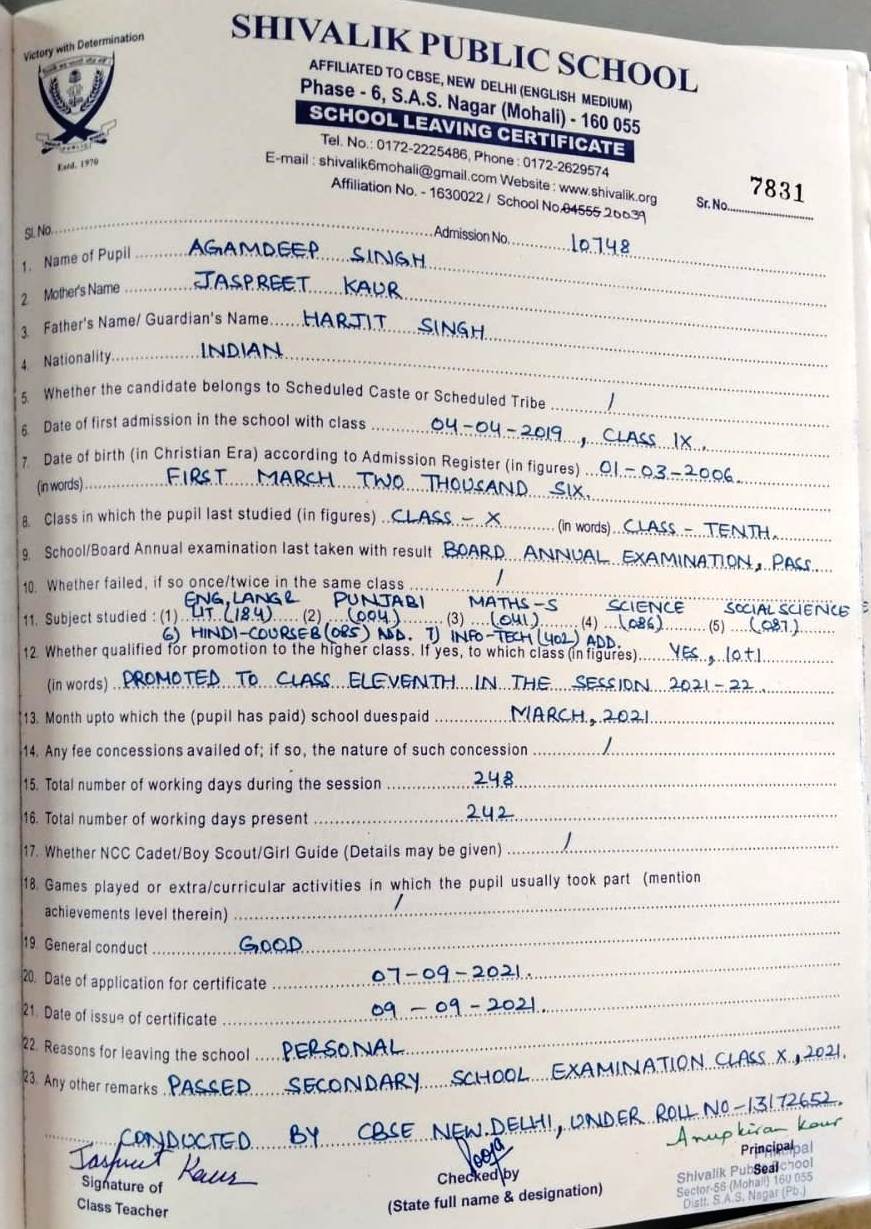 Victory with Determination
SHIVALIK PUBLIC SCHOOL
AFFILIATED TO CBSE, NEW DELHI (ENGLISH MEDIUM)
Phase - 6, S.A.S. Nagar (Mohali) - 160 055
SCHOOL LEAVING CERTIFICATE
Tel. No.: 0172-2225486, Phone : 0172-2629574
E-mail : shivalik6mohali@gmail.com Website : www.shivalik.org
Affiliation No. - 1630022 / School No.04555 20039
Estd. 1970
Sr. No. 7831
Sl. No. Admission No. 10748
1. Name of Pupil AGAMDEEP SINGH
2. Mother's Name JASPREET KAUR
3. Father's Name/ Guardian's Name HARJIT SINGH
4. Nationality INDIAN
5. Whether the candidate belongs to Scheduled Caste or Scheduled Tribe /
6. Date of first admission in the school with class 04-04-2019, CLASS IX.
7. Date of birth (in Christian Era) according to Admission Register (in figures) 01-03-2006.
(in words) FIRST MARCH TWO THOUSAND SIX.
8. Class in which the pupil last studied (in figures) CLASS - X (in words) CLASS - TENTH.
9. School/Board Annual examination last taken with result BOARD ANNUAL EXAMINATION, PASS
10. Whether failed, if so once/twice in the same class /
ENG. LANG & PUNJABI MATHS-S SCIENCE SOCIAL SCIENCE
11. Subject studied : (1) LIT (184) (2) (004) (3) (041) (4) (086) (5) (087)
6) HINDI-COURSE B (085) ADD. 7) INFO-TECH (402) ADD.
12. Whether qualified for promotion to the higher class. If yes, to which class (in figures) YES, 10+1
(in words) PROMOTED TO CLASS ELEVENTH IN THE SESSION 2021-22.
13. Month upto which the (pupil has paid) school duespaid MARCH, 2021
14. Any fee concessions availed of; if so, the nature of such concession /
15. Total number of working days during the session 248
16. Total number of working days present 242
17. Whether NCC Cadet/Boy Scout/Girl Guide (Details may be given) /
18. Games played or extra/curricular activities in which the pupil usually took part (mention
achievements level therein) /
19. General conduct GOOD
20. Date of application for certificate 07-09-2021.
21. Date of issue of certificate 09-09-2021.
22. Reasons for leaving the school PERSONAL
23. Any other remarks PASSED SECONDARY SCHOOL EXAMINATION CLASS X, 2021.
CONDUCTED BY CBSE NEW DELHI, UNDER ROLL NO-13172652.
Jaspreet Kaur
Pooja
Anupkiran Kaur
Signature of
Class Teacher
Checked by
(State full name & designation)
Principal
Seal
Principal
Shivalik Public School
Sector-56 (Mohali) 160 055
Distt. S.A.S. Nagar (Pb.)